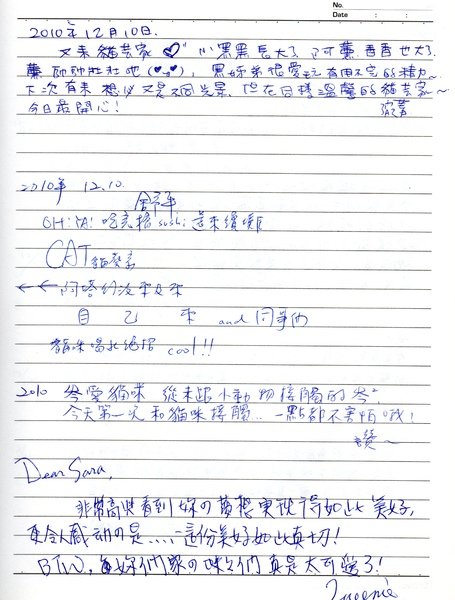 No.
Date : :
2010年12月10日.
又來貓芸家 小黑黑長大了, 阿薰香香也大了.
薰帥帥壯壯地 黑妞弟很愛玩有用不完的精力~
下次有來想必又是不同光景, 但在同樣溫馨的貓芸家~
今日最開心!
2010年 12.10.
OH! YA! 吃完 sushi 這來續攤
CAT
←← 阿塔幼沒來
自己來 and 同事們
貓咪喝水絕招 cool!!
2010 愛貓咪 從未跟小動物接觸的
今天第一次和貓咪接觸… 一點都不害怕哦!
讚~
Dear Sara,
非常高興看到妳の夢想實現得如此美好,
更令人感动の是.....這份美好如此真切!
BTW, 妳們家の咪咪們真是太可愛了!
Queenie